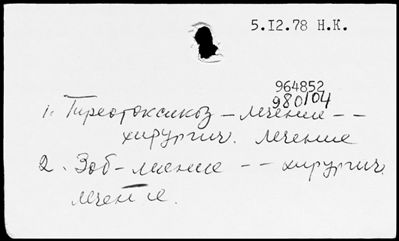 5.I2.78 Н.К.
964852
980104
1. Тиреотоксикоз - лечение --
хирургич. лечение
2. Зоб - лечение -- хирургич.
лечение.